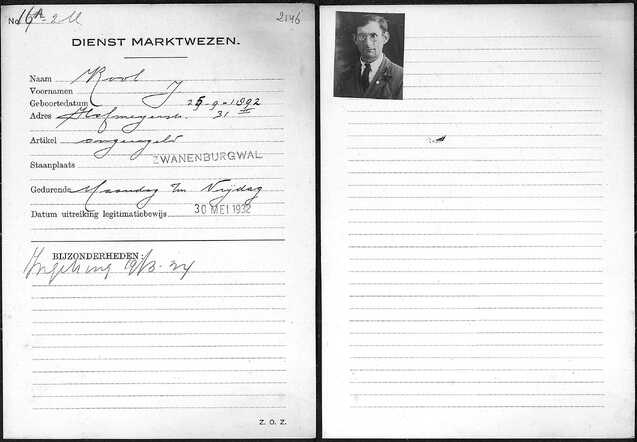 No. 16A - 2 M 2146
DIENST MARKTWEZEN.
Naam Kool
Voornamen J
Geboortedatum 25-9-1892
Adres Hofmeyerstr. 31 II
Artikel ongeregeld
Staanplaats ZWANENBURGWAL
Gedurende Maandag t/m Vrijdag
Datum uitreiking legitimatiebewijs 30 MEI 1932
BIJZONDERHEDEN:
19/3-34
Z. O. Z.